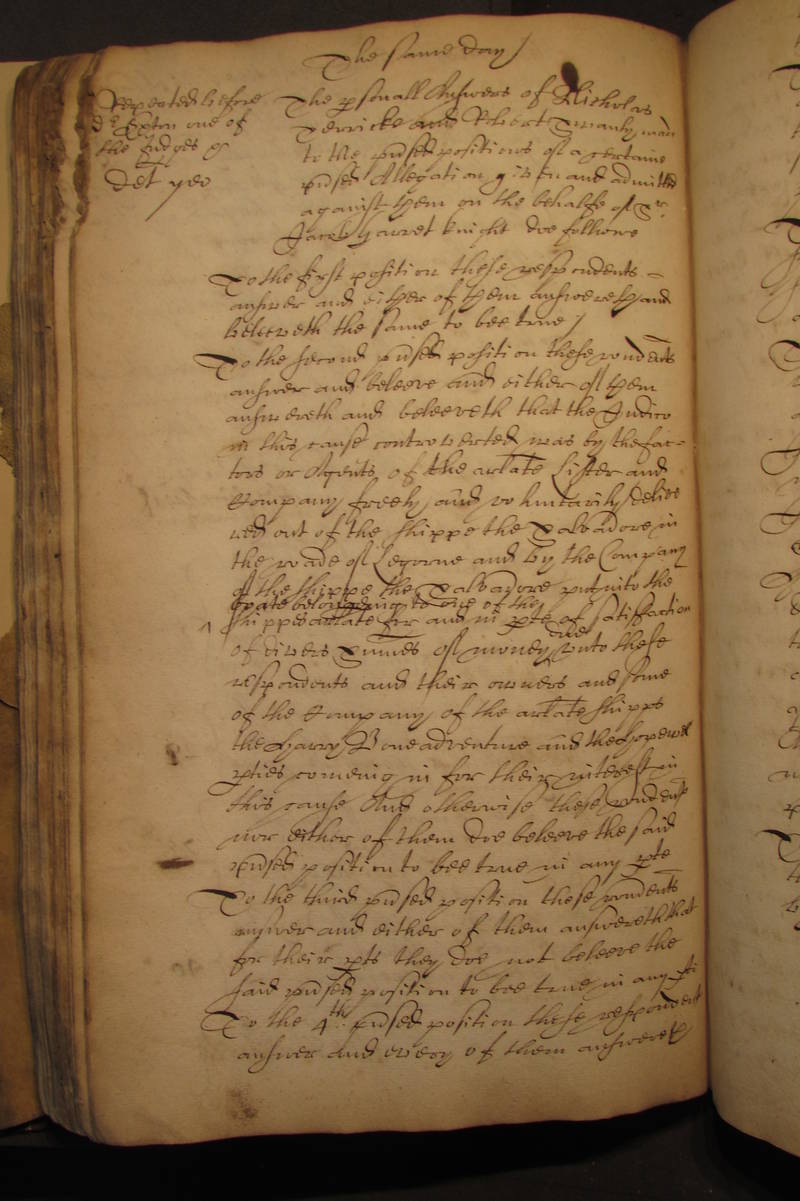 The same day /
Repeated before
dr Exton one of
the Judges &
det yeo
The psonall Answers of Nicholas
Terricke and Robert Swanlyman
to the pnsed positions of a certaine
pnsed Allegation given and admitted
against them on the behalfe of Sr.
Jacob Garret knight doe followe
To the first position these respondents
answer and either of them answereth and
beleeveth the same to bee true /
To the second pnsed position these rondents
answer and beleeve and either of them
answereth and beleeveth that the Indico
in this cause controverted was by the fac-
tors or Agents of the arlate Lister and
Company freely and voluntarily delive
red out of the shippe the Salvadore in
the roade of Legorne and by the Company
of the shippe the Salvadore put into the
boate belonging to one of the
shipps arlate for and in pte of satisfaction
of divers Summes of money due unto these
respondents and their owners and some
of the Company of the arlate shipps
the Harry Boneadventure and the Hopewel
pties comeing in for their interest in
this cause And otherwise these rondents
nor either of them doe beleeve the said
pnsed position to bee true in any pte
To the third pnsed position these rondents
answer and either of them answereth that
for their pts they doe not beleeve the
said pnsed position to bee true in any pte
To the 4th. pnsed position these respondents
answer and every of them answereth